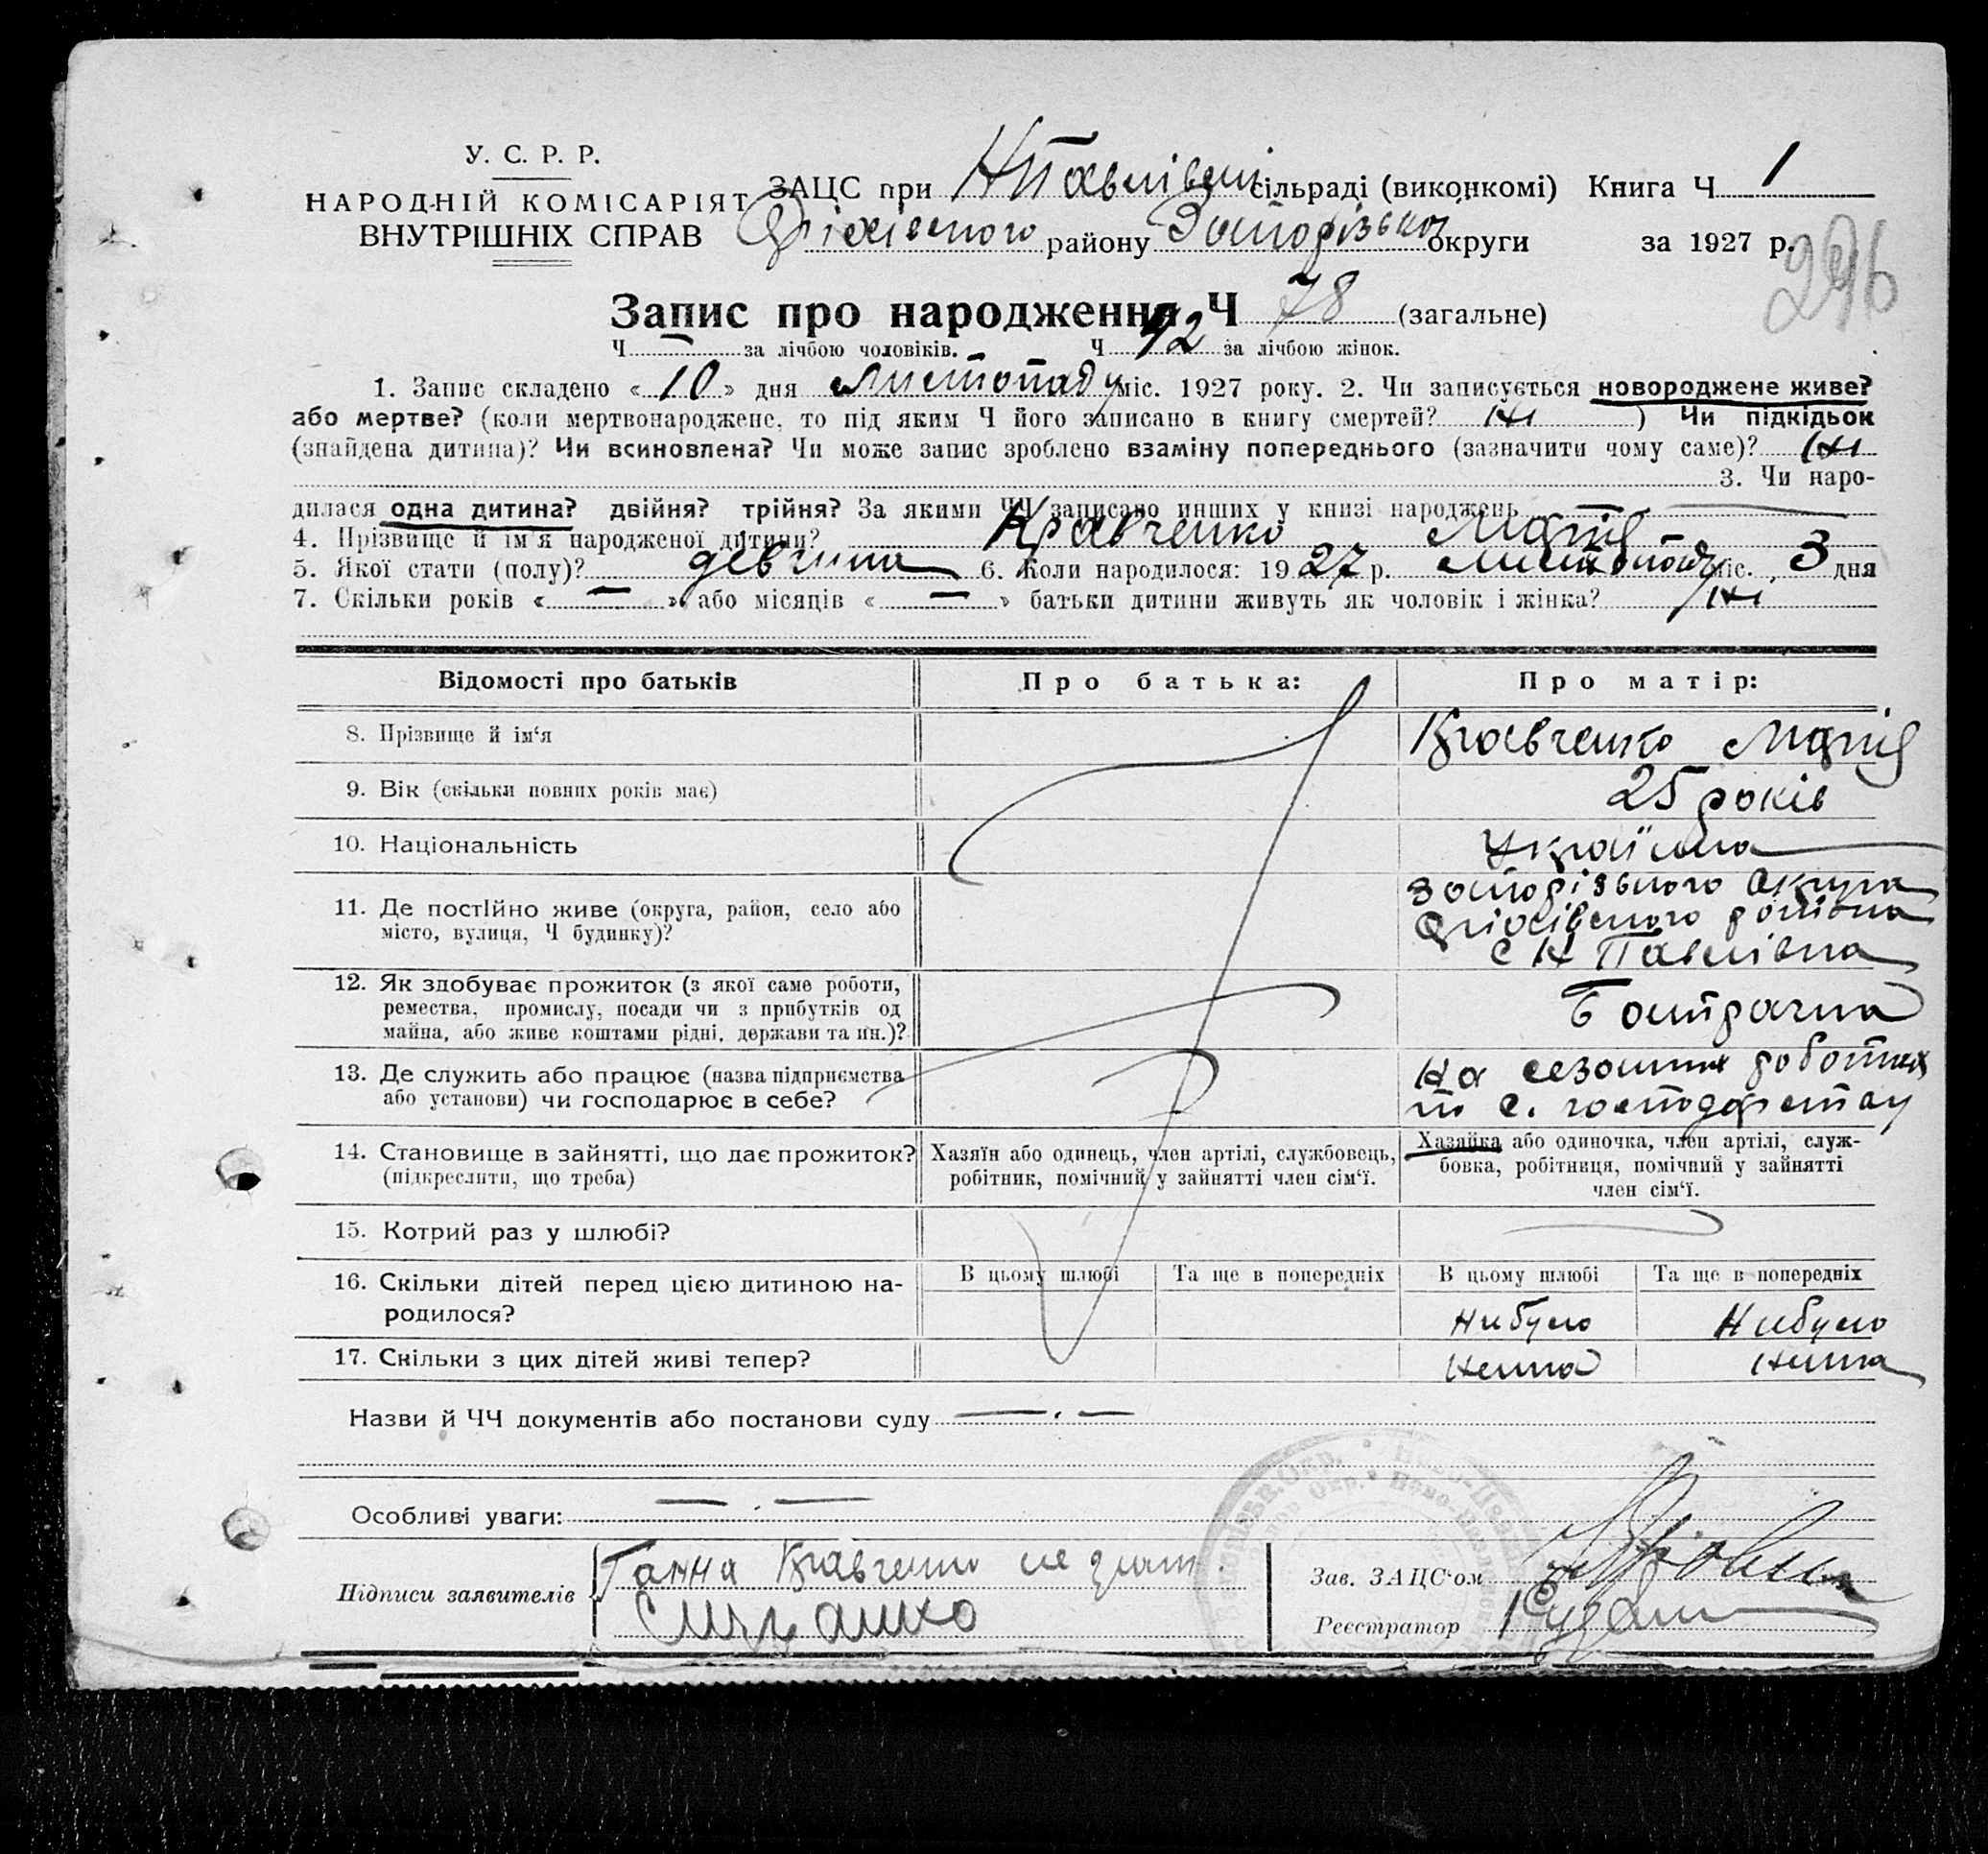 У. С. Р. Р.
НАРОДНІЙ КОМІСАРІЯТ
ВНУТРІШНІХ СПРАВ
ЗАЦС при НПавлівські сільраді (виконкомі) Книга Ч 1
Оріхівського району Запорізької округи за 1927 р.
296
Запис про народження Ч 78 (загальне)
Ч — за лічбою чоловіків. Ч 42 за лічбою жінок.
1. Запис складено « 10 » дня Листопаду міс. 1927 року. 2. Чи записується новороджене живе?
або мертве? (коли мертвонароджене, то під яким Ч його записано в книгу смертей? Ні ) Чи підкідьок
(знайдена дитина)? Чи всиновлена? Чи може запис зроблено взаміну попереднього (зазначити чому саме)? Ні
3. Чи наро-
дилася одна дитина? двійня? трійня? За якими ЧЧ записано инших у книзі народжень —
4. Прізвище й ім'я народженої дитини? Кравченко Марія
5. Якої стати (полу)? девчина 6. Коли народилося: 1927 р. листопаду міс. 3 дня
7. Скільки років « — » або місяців « — » батьки дитини живуть як чоловік і жінка? Ні
Відомості про батьків Про батька: Про матір:
8. Прізвище й ім‘я Кравченко Марія
9. Вік (скільки повних років має) 25 років
10. Національність Українка
11. Де постійно живе (округа, район, село або
місто, вулиця, Ч будинку)?
Запорізького Округа
Оріхівського району
с Н Павлівка
12. Як здобуває прожиток (з якої саме роботи,
ремества, промислу, посади чи з прибутків од
майна, або живе коштами рідні, держави та ин.)?
Батрачка
13. Де служить або працює (назва підприємства
або установи) чи господарює в себе?
На сезонних роботах
по с. господарству
14. Становище в зайнятті, що дає прожиток?
(підкреслити, що треба)
Хазяїн або одинець, член артілі, службовець,
робітник, помічний у зайнятті член сім‘ї.
Хазяйка або одиночка, член артілі, служ-
бовка, робітниця, помічний у зайнятті
член сім‘ї.
15. Котрий раз у шлюбі? —
16. Скільки дітей перед цією дитиною на-
родилося?
В цьому шлюбі Та ще в попередніх В цьому шлюбі Та ще в попередніх
Нибуло Нибуло
17. Скільки з цих дітей живі тепер? Нема Нема
Назви й ЧЧ документів або постанови суду — . —
Особливі уваги: — . —
Підписи заявителів Ганна Кравченко
Зав. ЗАЦС‘ом
Реєстратор